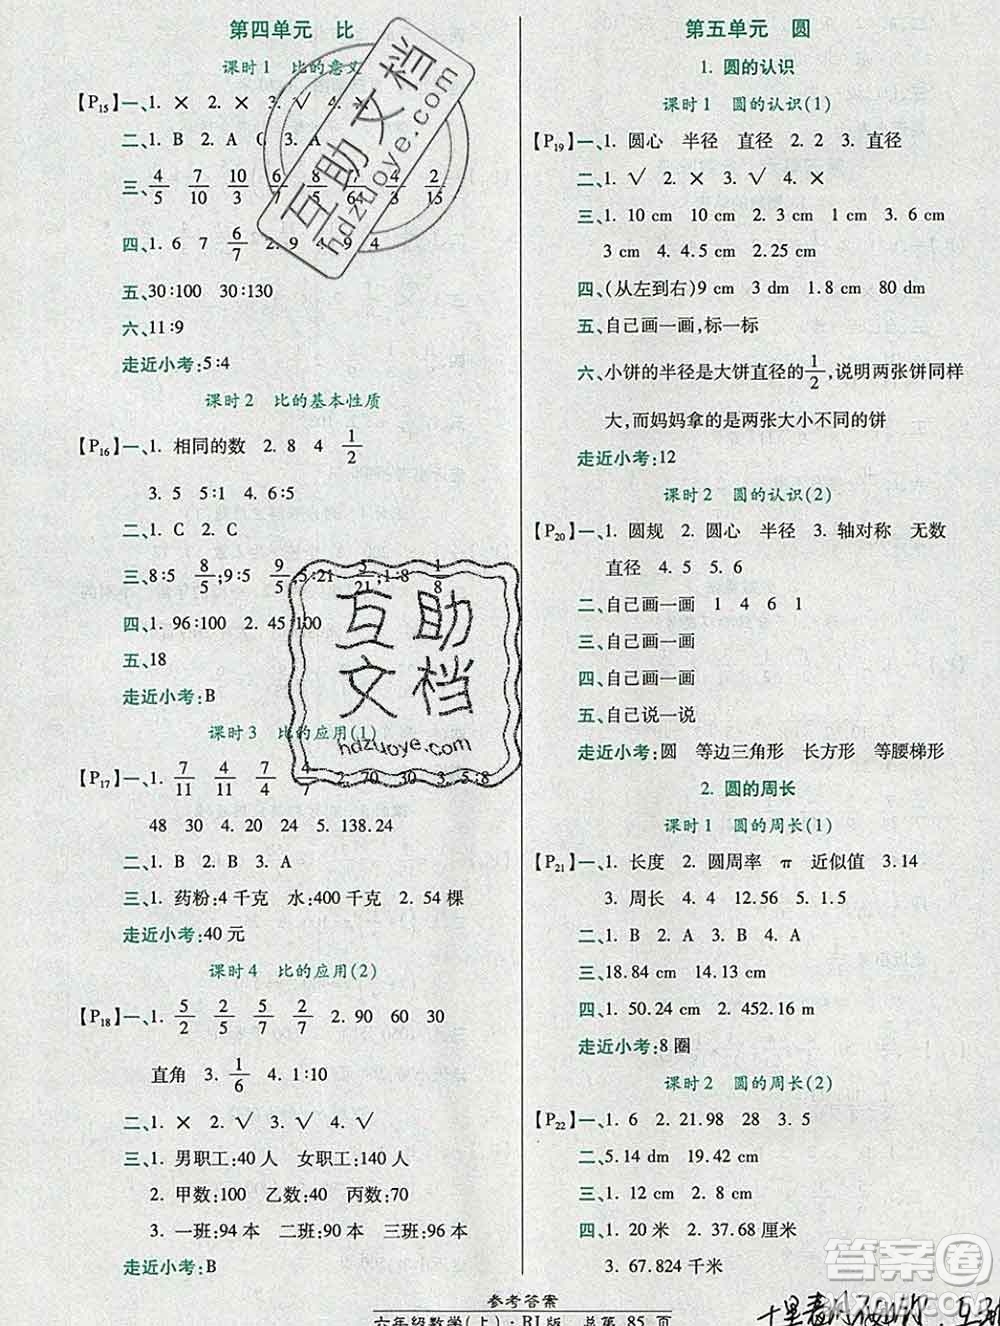 第四单元 比
课时1 比的意义
【P15】一、1. × 2. × 3. √ 4. ×
二、1. B 2. A
三、4/5 7/10 10/3 7/8
四、1. 6 7 6/7 2. 9 4 9 4
五、30∶100 30∶130
六、11∶9
走近小考:5∶4
课时2 比的基本性质
【P16】一、1. 相同的数 2. 8 4 1/2
3. 5 5∶1 4. 6∶5
二、1. C 2. C
三、8∶5 8/5;9∶5 9/5;5∶21 5/21;1∶8 1/8
四、1. 96∶100 2. 45∶100
五、18
走近小考:B
课时3 比的应用(1)
【P17】一、1. 7/11 4/11 7/4 4/7 2. 70 30 3. 5∶8
48 30 4. 20 24 5. 138.24
二、1. B 2. B 3. A
三、1. 药粉:4 千克 水:400 千克 2. 54 棵
走近小考:40 元
课时4 比的应用(2)
【P18】一、1. 5/2 2/5 5/7 2/7 2. 90 60 30
直角 3. 1/6 4. 1∶10
二、1. × 2. √ 3. √ 4. √
三、1. 男职工:40 人 女职工:60 人
2. 甲数:100 乙数:40 丙数:70
3. 一班:94 本 二班:90 本 三班:96 本
走近小考:B
第五单元 圆
1. 圆的认识
课时1 圆的认识(1)
【P19】一、1. 圆心 半径 直径 2. 2 3. 直径
二、1. √ 2. × 3. √ 4. ×
三、1. 10 cm 10 cm 2. 3 cm 3. 6 cm
3 cm 4. 4.5 cm 2.25 cm
四、(从左到右)9 cm 3 dm 1.8 cm 80 dm
五、自己画一画,标一标
六、小饼的半径是大饼直径的1/2,说明两张饼同样
大,而妈妈拿的是两张大小不同的饼
走近小考:12
课时2 圆的认识(2)
【P20】一、1. 圆规 2. 圆心 半径 3. 轴对称 无数
直径 4. 5 5. 4
二、自己画一画 1 4 6 1
三、自己画一画
四、自己画一画
五、自己说一说
走近小考:圆 等边三角形 长方形 等腰梯形
2. 圆的周长
课时1 圆的周长(1)
【P21】一、1. 长度 2. 圆周率 π 近似值 3.14
3. 周长 4. 4 12.56 5. 1.5
二、1. B 2. A 3. B 4. A
三、18.84 cm 94.2 cm
四、1. 50.24 cm 2. 452.16 m
走近小考:8 圈
课时2 圆的周长(2)
【P22】一、1. 6 2. 21.98 28 3. 5
二、5.14 dm 19.42 cm
三、1. 12 cm 2. 6.28 cm
四、1. 20 米 2. 37.68 厘米
3. 67.824 千米
参考答案
六年级数学(上)·RJ版 总第 85 页
互助文档
hdzuoye.com
互助
文档
hdzuoye.com
答案圈